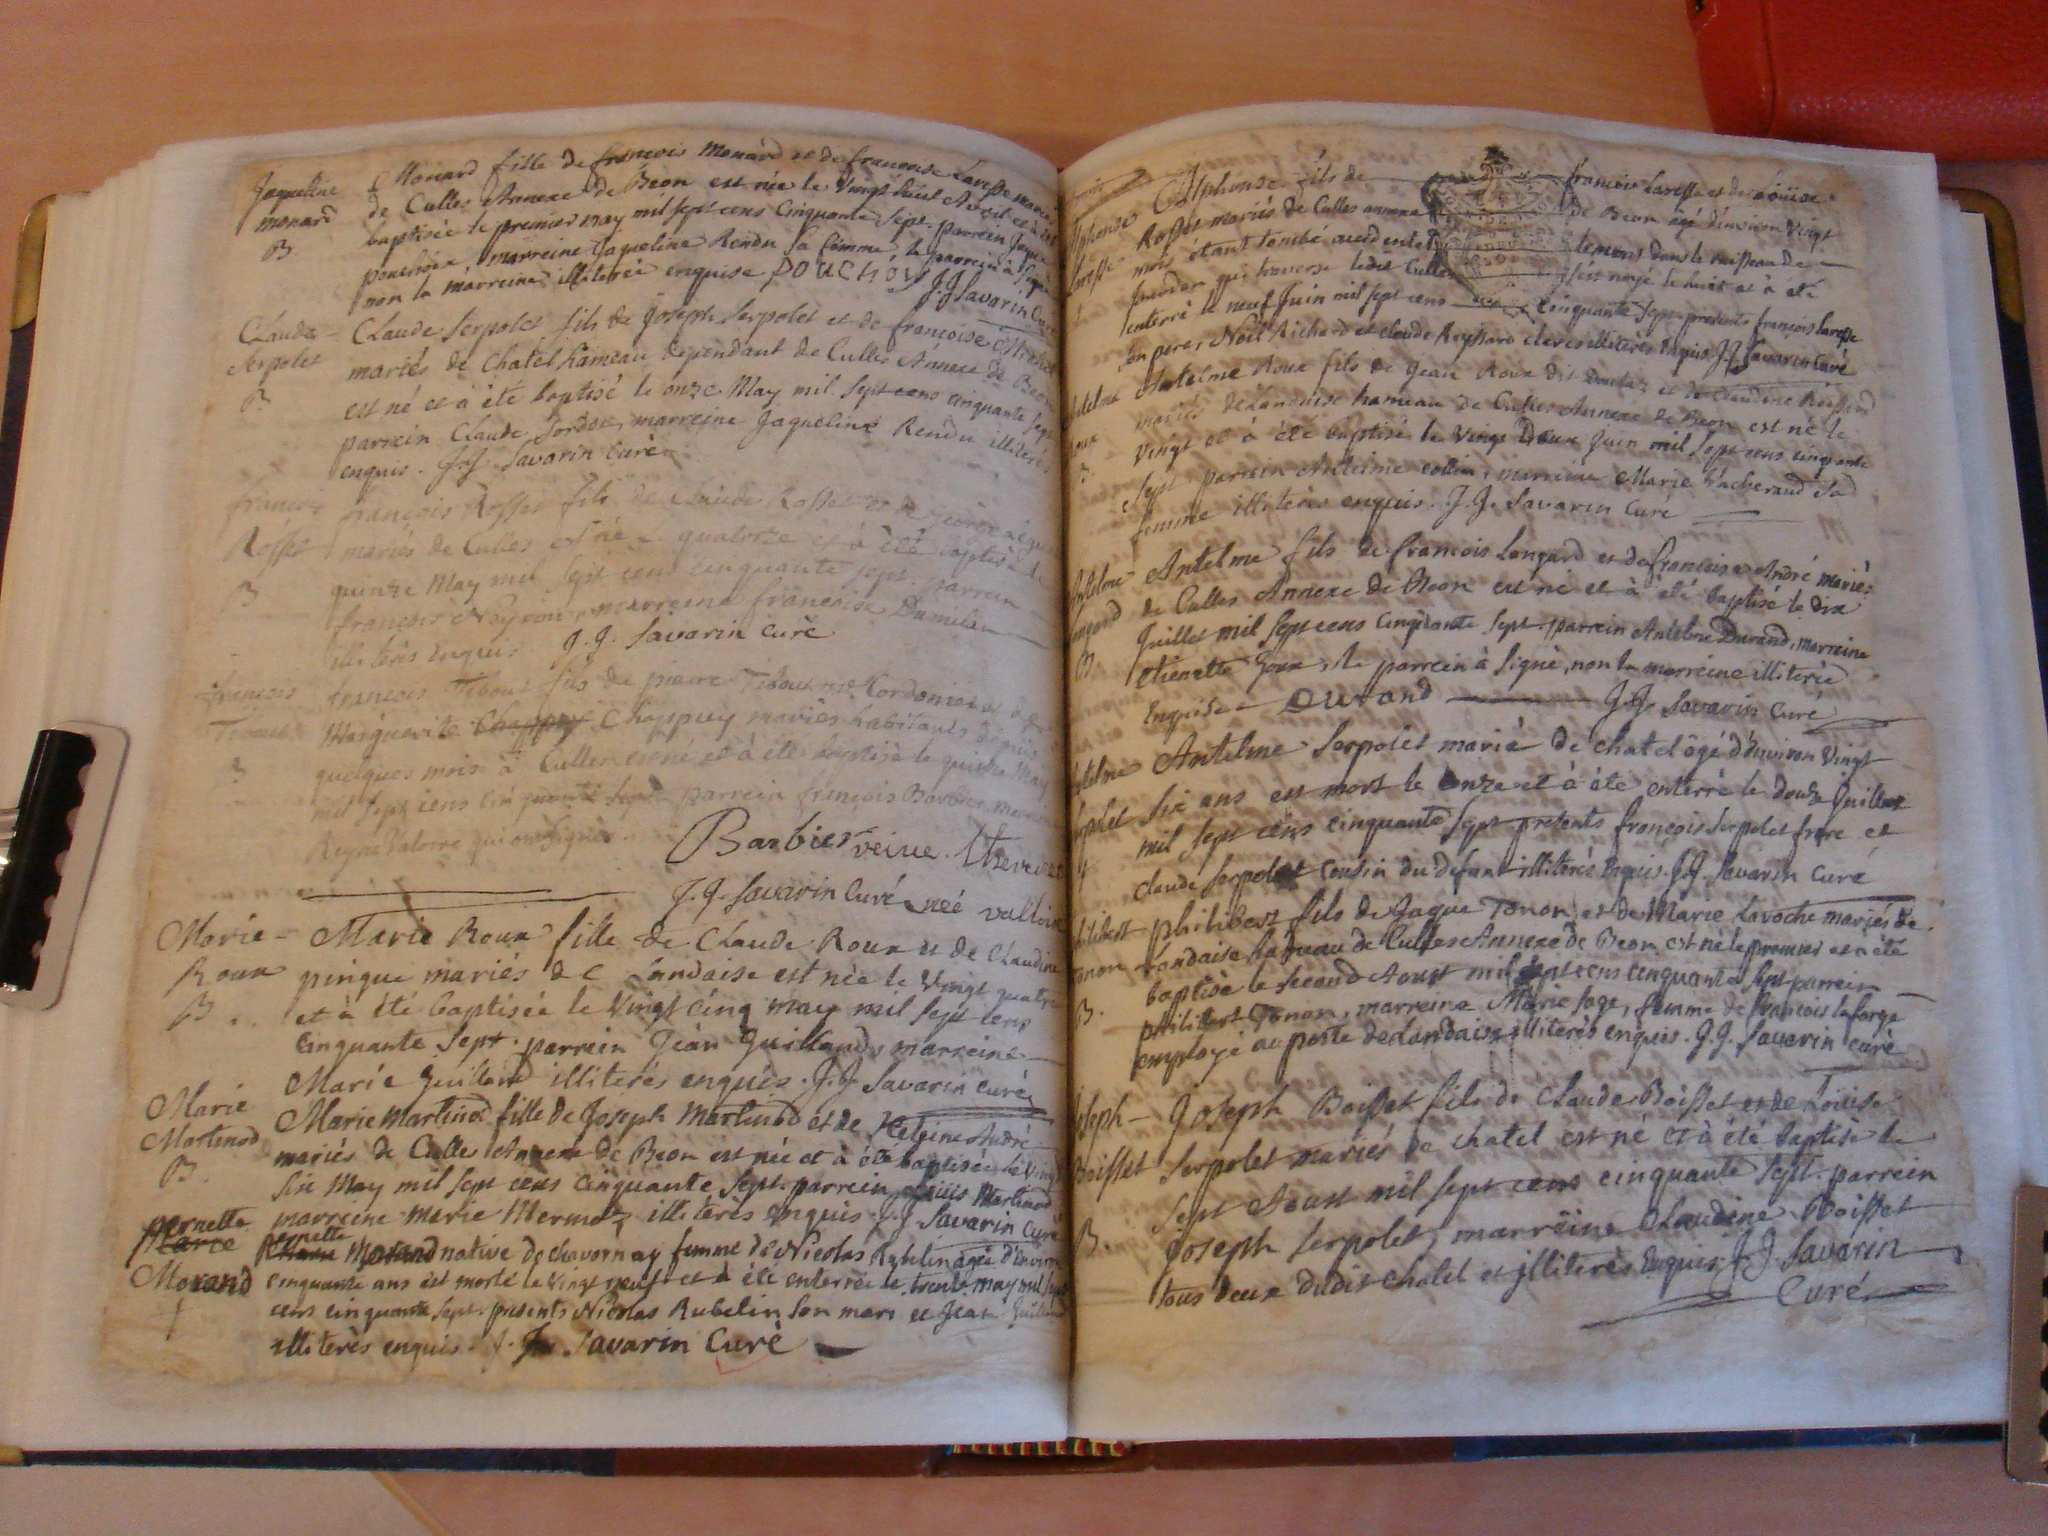 Jaqueline
monard
B.
Monard fille de françois monard et de francoise Laresse mariés
de Culles Annexe de Beon est née le Vingt huit Avril et à été
baptisée le premier may mil sept cens Cinquante sept. parrein
marreine Jaqueline Rendu sa femme, le parrein à signé
non la marreine illiterée enquise POUCHOY J.J. Savarin Curé
Claude
Serpolet
B.
Claude Serpolet fils de Joseph Serpolet et de françoise
mariés de Chatel hameau dependant de Culles Annexe de Beon
est né et à éte baptisé le onze May mil sept cens cinquante sept
parrein Claude marreine Jaqueline Rendu illiterés
enquis. J.J. Savarin curé
françois
Rosset
B
françois Rosset fils de Claude Rosset et de
mariés de Culles est né le quatorze et à été baptisé le
quinze May mil sept cens cinquante sept. parrein
françois marreine francoise
illiterés Enquis. J.J. Savarin curé
françois
Tibout
B
françois Tibout fils de pierre Tibout Mre Cordonier et de
Marguerite Chappuy Chappuy mariés habitants depuis
quelques mois à Culles est né et à été baptisé le quinze May
mil sept cens cinquante sept parrein françois Barbier
Reyne Valoire qui ont signés.
Barbier veiue
J.J. Savarin Curé neé valloire
Marie
Roux
B.
Marie Roux fille de Claude Roux et de Claudine
pinque mariés de Landaise est née le Vingt quatre
et à été baptisée le Vingt cinq may mil sept cens
cinquante sept. parrein Jean Guilland, marreine
Marie Guilland illiterés enquis. J.J. Savarin curé
Marie
Martinod
B.
Marie Martinod fille de Joseph Martinod et de André
mariés de Culles Annexe de Beon est née et à éte baptisée le Vingt
six May mil sept cens cinquante sept. parrein Louis Martinod
marreine marie Mermoz illiterés enquis. J.J. Savarin Curé
pernette
Marie
Morand
†
pernette
Marie Morand native de chavornay femme de Nicolas Rubelin agée d'environ
cinquante ans est morte le Vingt neuf et à été enterrée le trente may mil sept
cens cinquante sept. presents Nicolas Rubelin son mari et Jean Guilland
illiterés enquis. J.J. Savarin Curé
Alphonse
Laresse
Alphonse fils de françois Laresse et de Loüise
Rosset mariés de Culles annexe de Beon agé d'environ Vingt
mois étant tombé dans le ruisseau de
qui traverse ledit Culles s'est noyé le huit et à été
enterré le neuf Juin mil sept cens cinquante sept presents françois Laresse
son pere, Noël Richard et claude illiterés enquis J.J. Savarin Curé
Antelme
Roux
B
Antelme Roux fils de Jean Roux dit et de Claudine
mariés de Landaise hameau de Culles Annexe de Beon est né le
Vingt et à été baptisé le vingt Deux Juin mil sept cens cinquante
Sept parrein Antelme collin, marreine Marie sa
femme illiterés enquis. J.J. Savarin Curé
Antelme
Longard
B
Antelme fils de francois Longard et de francoise André mariés
de Culles Annexe de Beon est né et à été baptisé le dix
Juillet mil sept cens cinquante sept. parrein Antelme Durand, marreine
etienette Goux, le parrein à signé, non la marreine illiterée
Enquise DURand J.J. Savarin Curé
Antelme
Serpolet
†
Antelme Serpolet marié de chatel âgé d'environ Vingt
six ans est mort le onze et à éte enterré le douze Juillet
mil sept cens cinquante sept presents françois Serpolet frere et
Claude Serpolet cousin du defunt illiterés Enquis. J.J. Savarin Curé
philibert
Tonon
B.
philibert fils de Jaque Tonon, et de Marie Laroche mariés de
Landaise hameau de Culles Annexe de Beon est né le premier et a été
baptisé le second Aoust mil sept cens cinquante sept parrein
philibert Tonon, marreine Marie Sage, femme de francois laforge
employé au poste de Landaise illiterés enquis. J.J. Savarin curé
Joseph
Boisset
B.
Joseph Boisset fils de Claude Boisset et de Loüise
Serpolet mariés de chatel est né et à été baptisé le
Sept Aoust mil sept cens cinquante sept. parrein
Joseph Serpolet, marreine Claudine Boisset
tous deux dudit Chatel et illiterés Enquis J.J Savarin
Curé